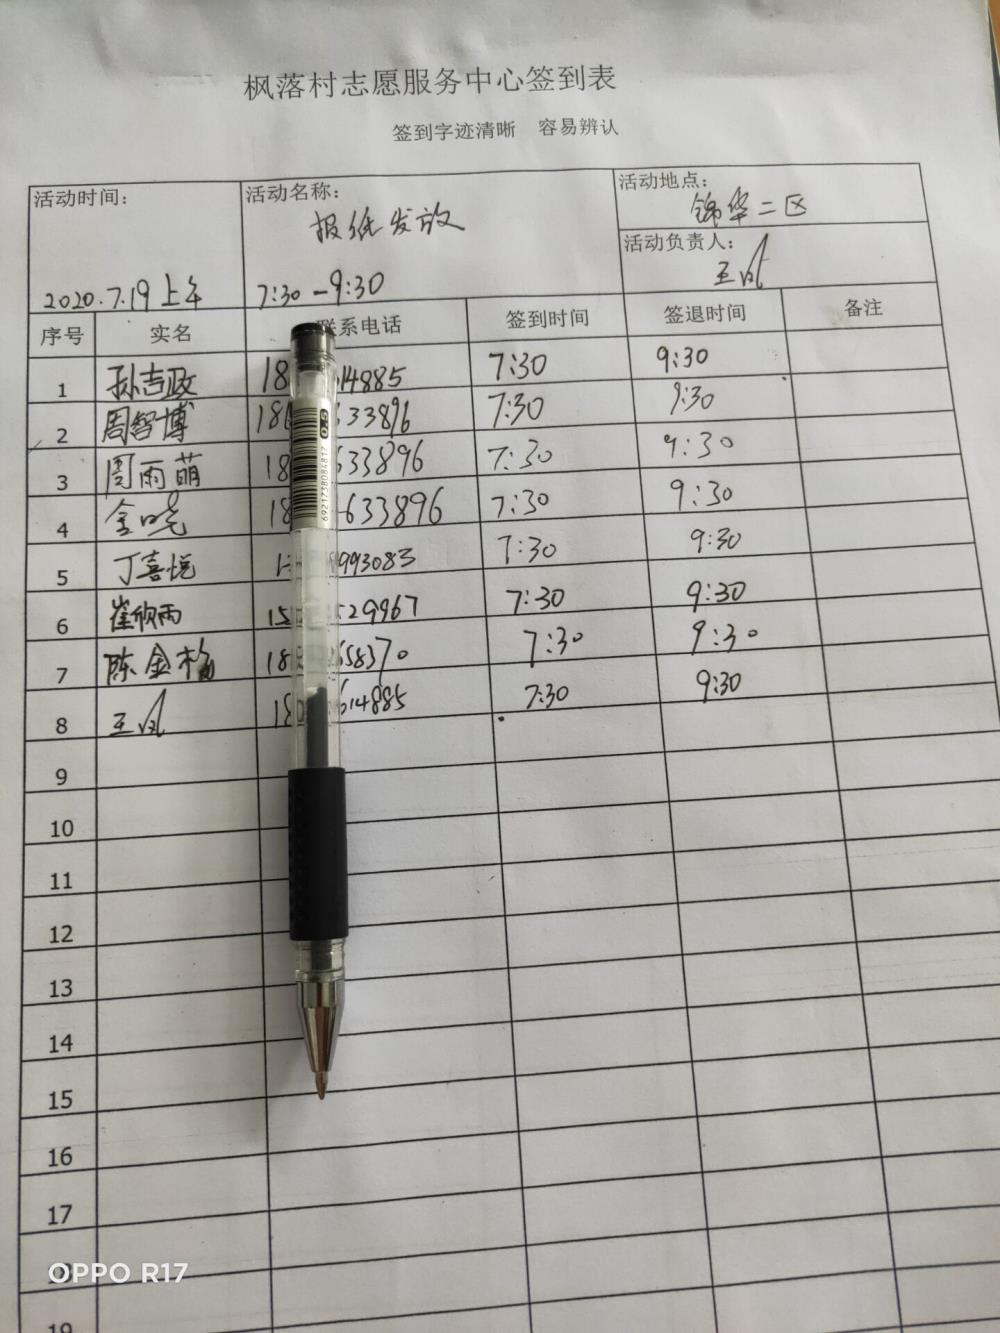 枫落村志愿服务中心签到表
签到字迹清晰 容易辨认
活动时间： 活动名称： 活动地点：
报纸发放 锦华二区
活动负责人：
王凤
2020.7.19上午 7:30-9:30
序号 实名 联系电话 签到时间 签退时间 备注
1 孙吉政 18 14885 7:30 9:30
2 周智博 18 633896 7:30 9:30
3 周雨萌 18 633896 7:30 9:30
4 金晓 18 633896 7:30 9:30
5 丁喜悦 1 993083 7:30 9:30
6 崔欣雨 15 529967 7:30 9:30
7 陈金 18 658370 7:30 9:30
8 王凤 18 614885 7:30 9:30
9
10
11
12
13
14
15
16
17
18
19
6921738084817
OPPO R17